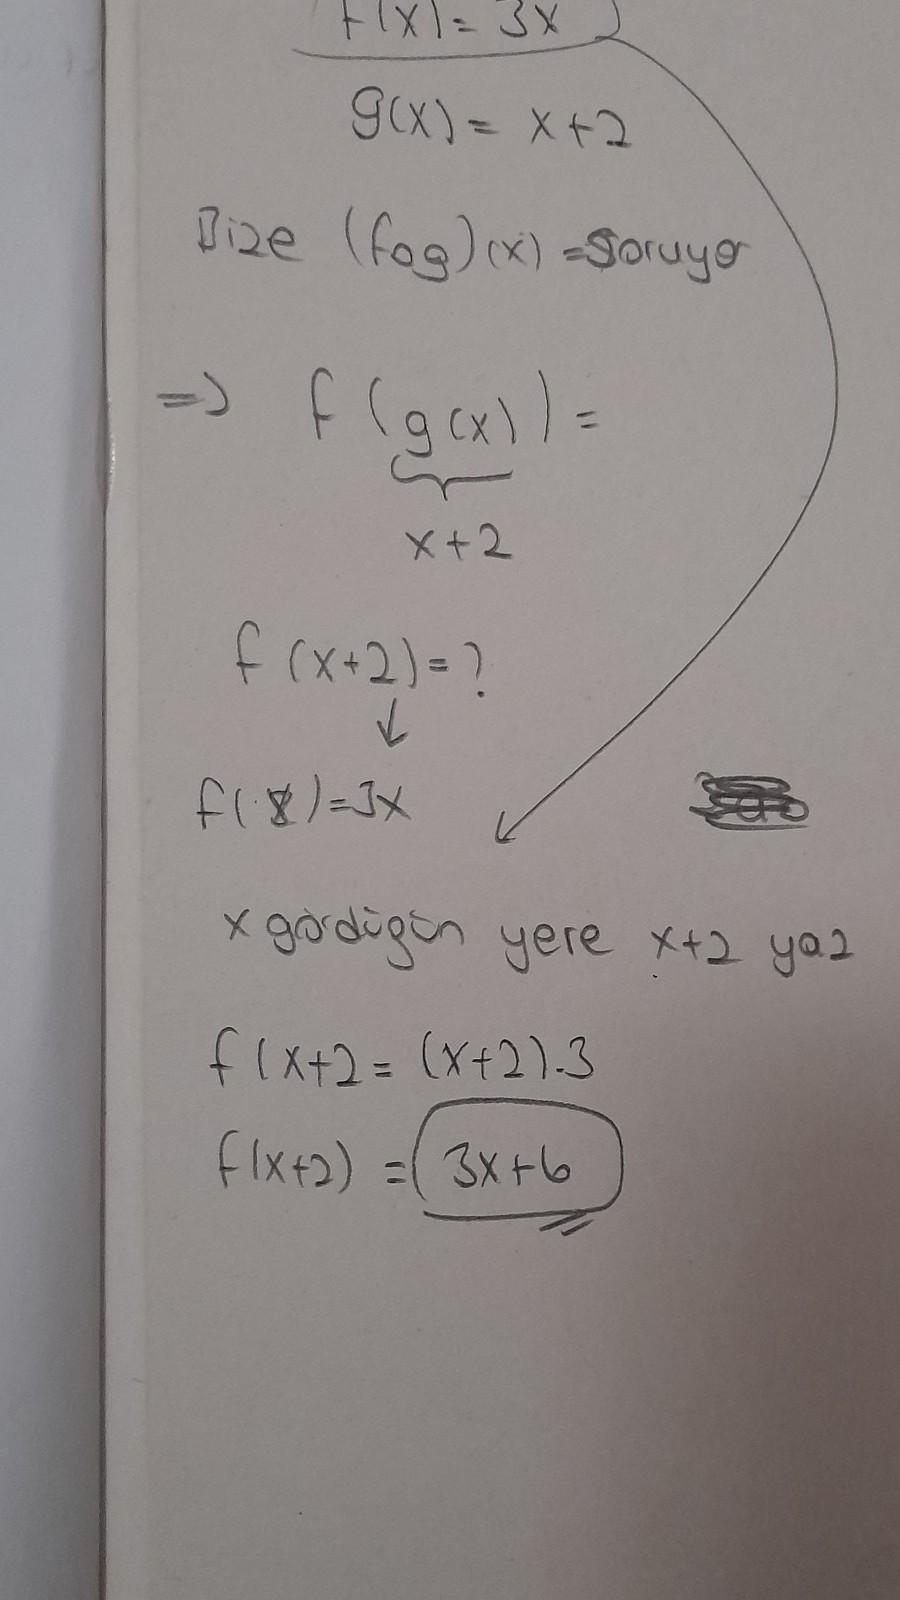 f(x) = 3x
g(x) = x+2
Bize (fog)(x) = soruyor
=> f(g(x)) =
x+2
f(x+2) = ?
↓
f(x) = 3x
x gördüğün yere x+2 yaz
f(x+2 = (x+2).3
f(x+2) = 3x+6